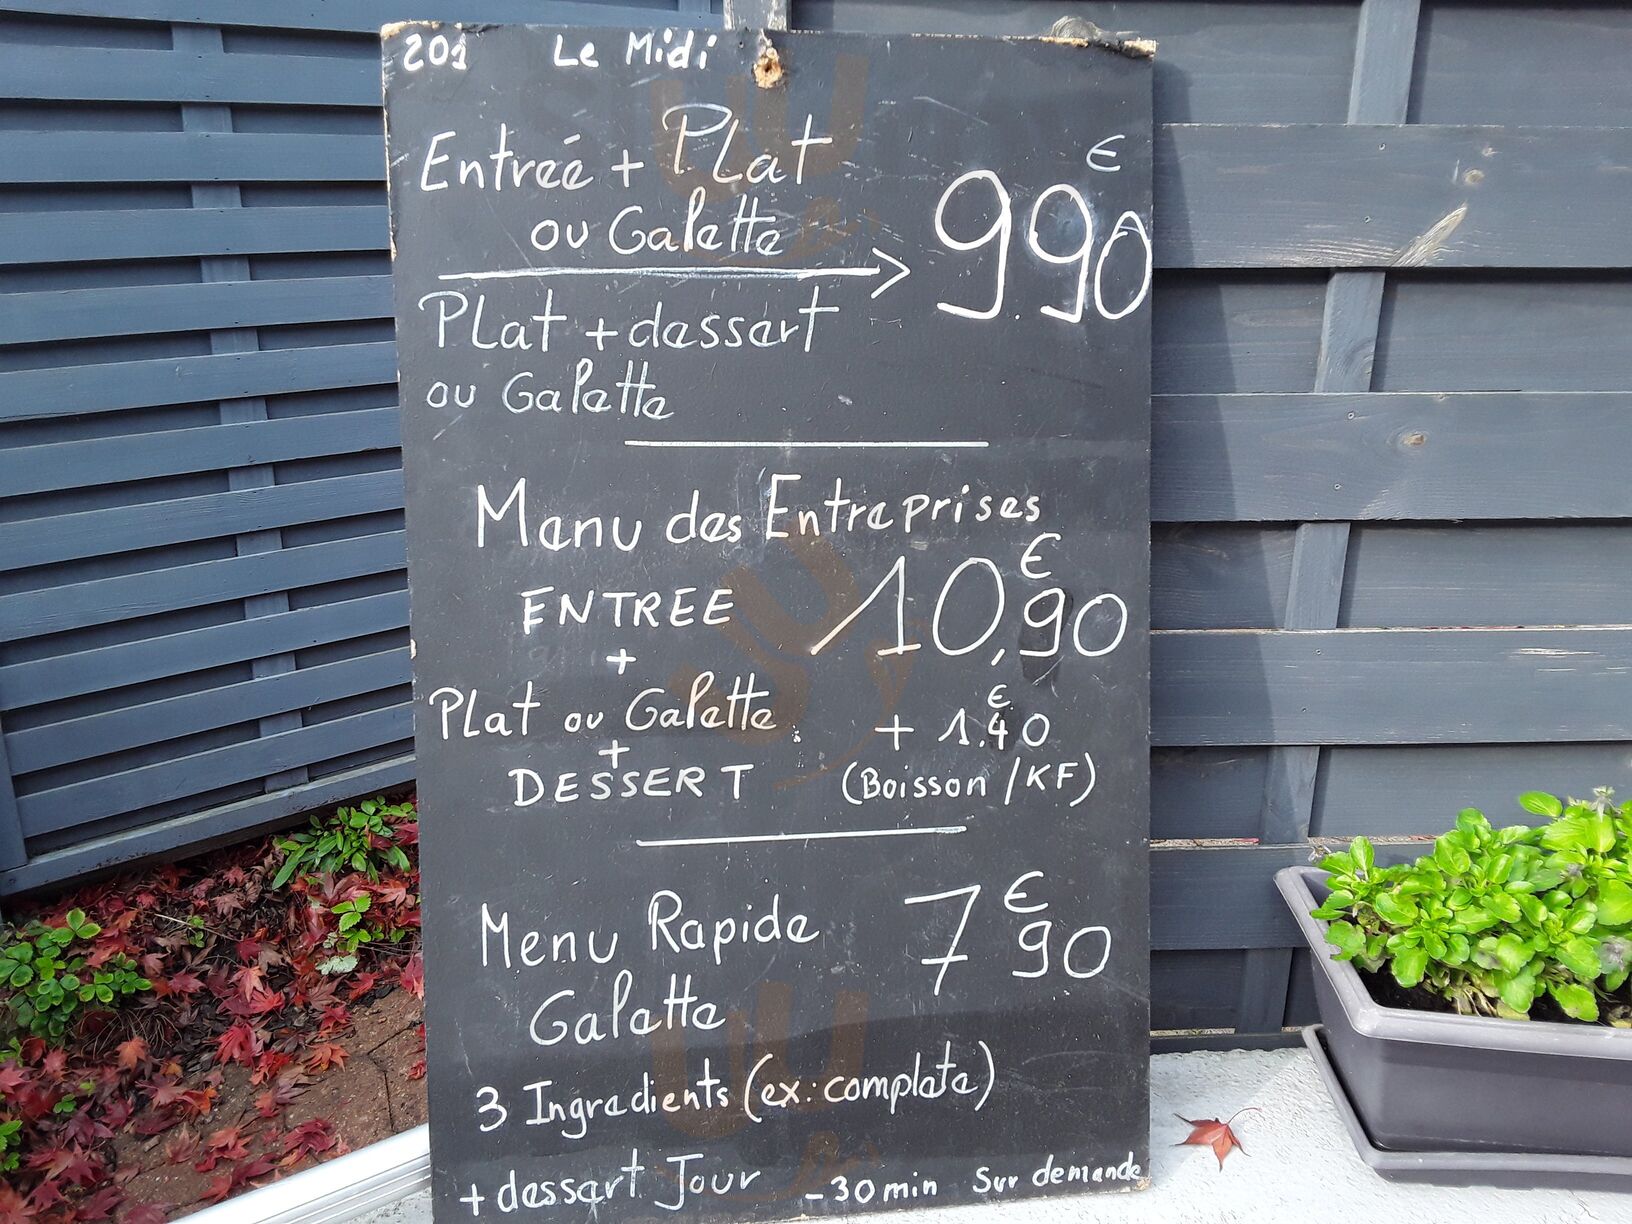 201 Le Midi
Entrée + Plat
ou Galette
€
9.90
Plat + dessert
ou Galette
Menu des Entreprises
€
10,90
ENTREE
+
Plat ou Galette
+
DESSERT
€
+ 1.40
(Boisson / KF)
Menu Rapide
7€90
Galette
3 Ingredients (ex: complete)
+ dessert Jour - 30 min Sur demande